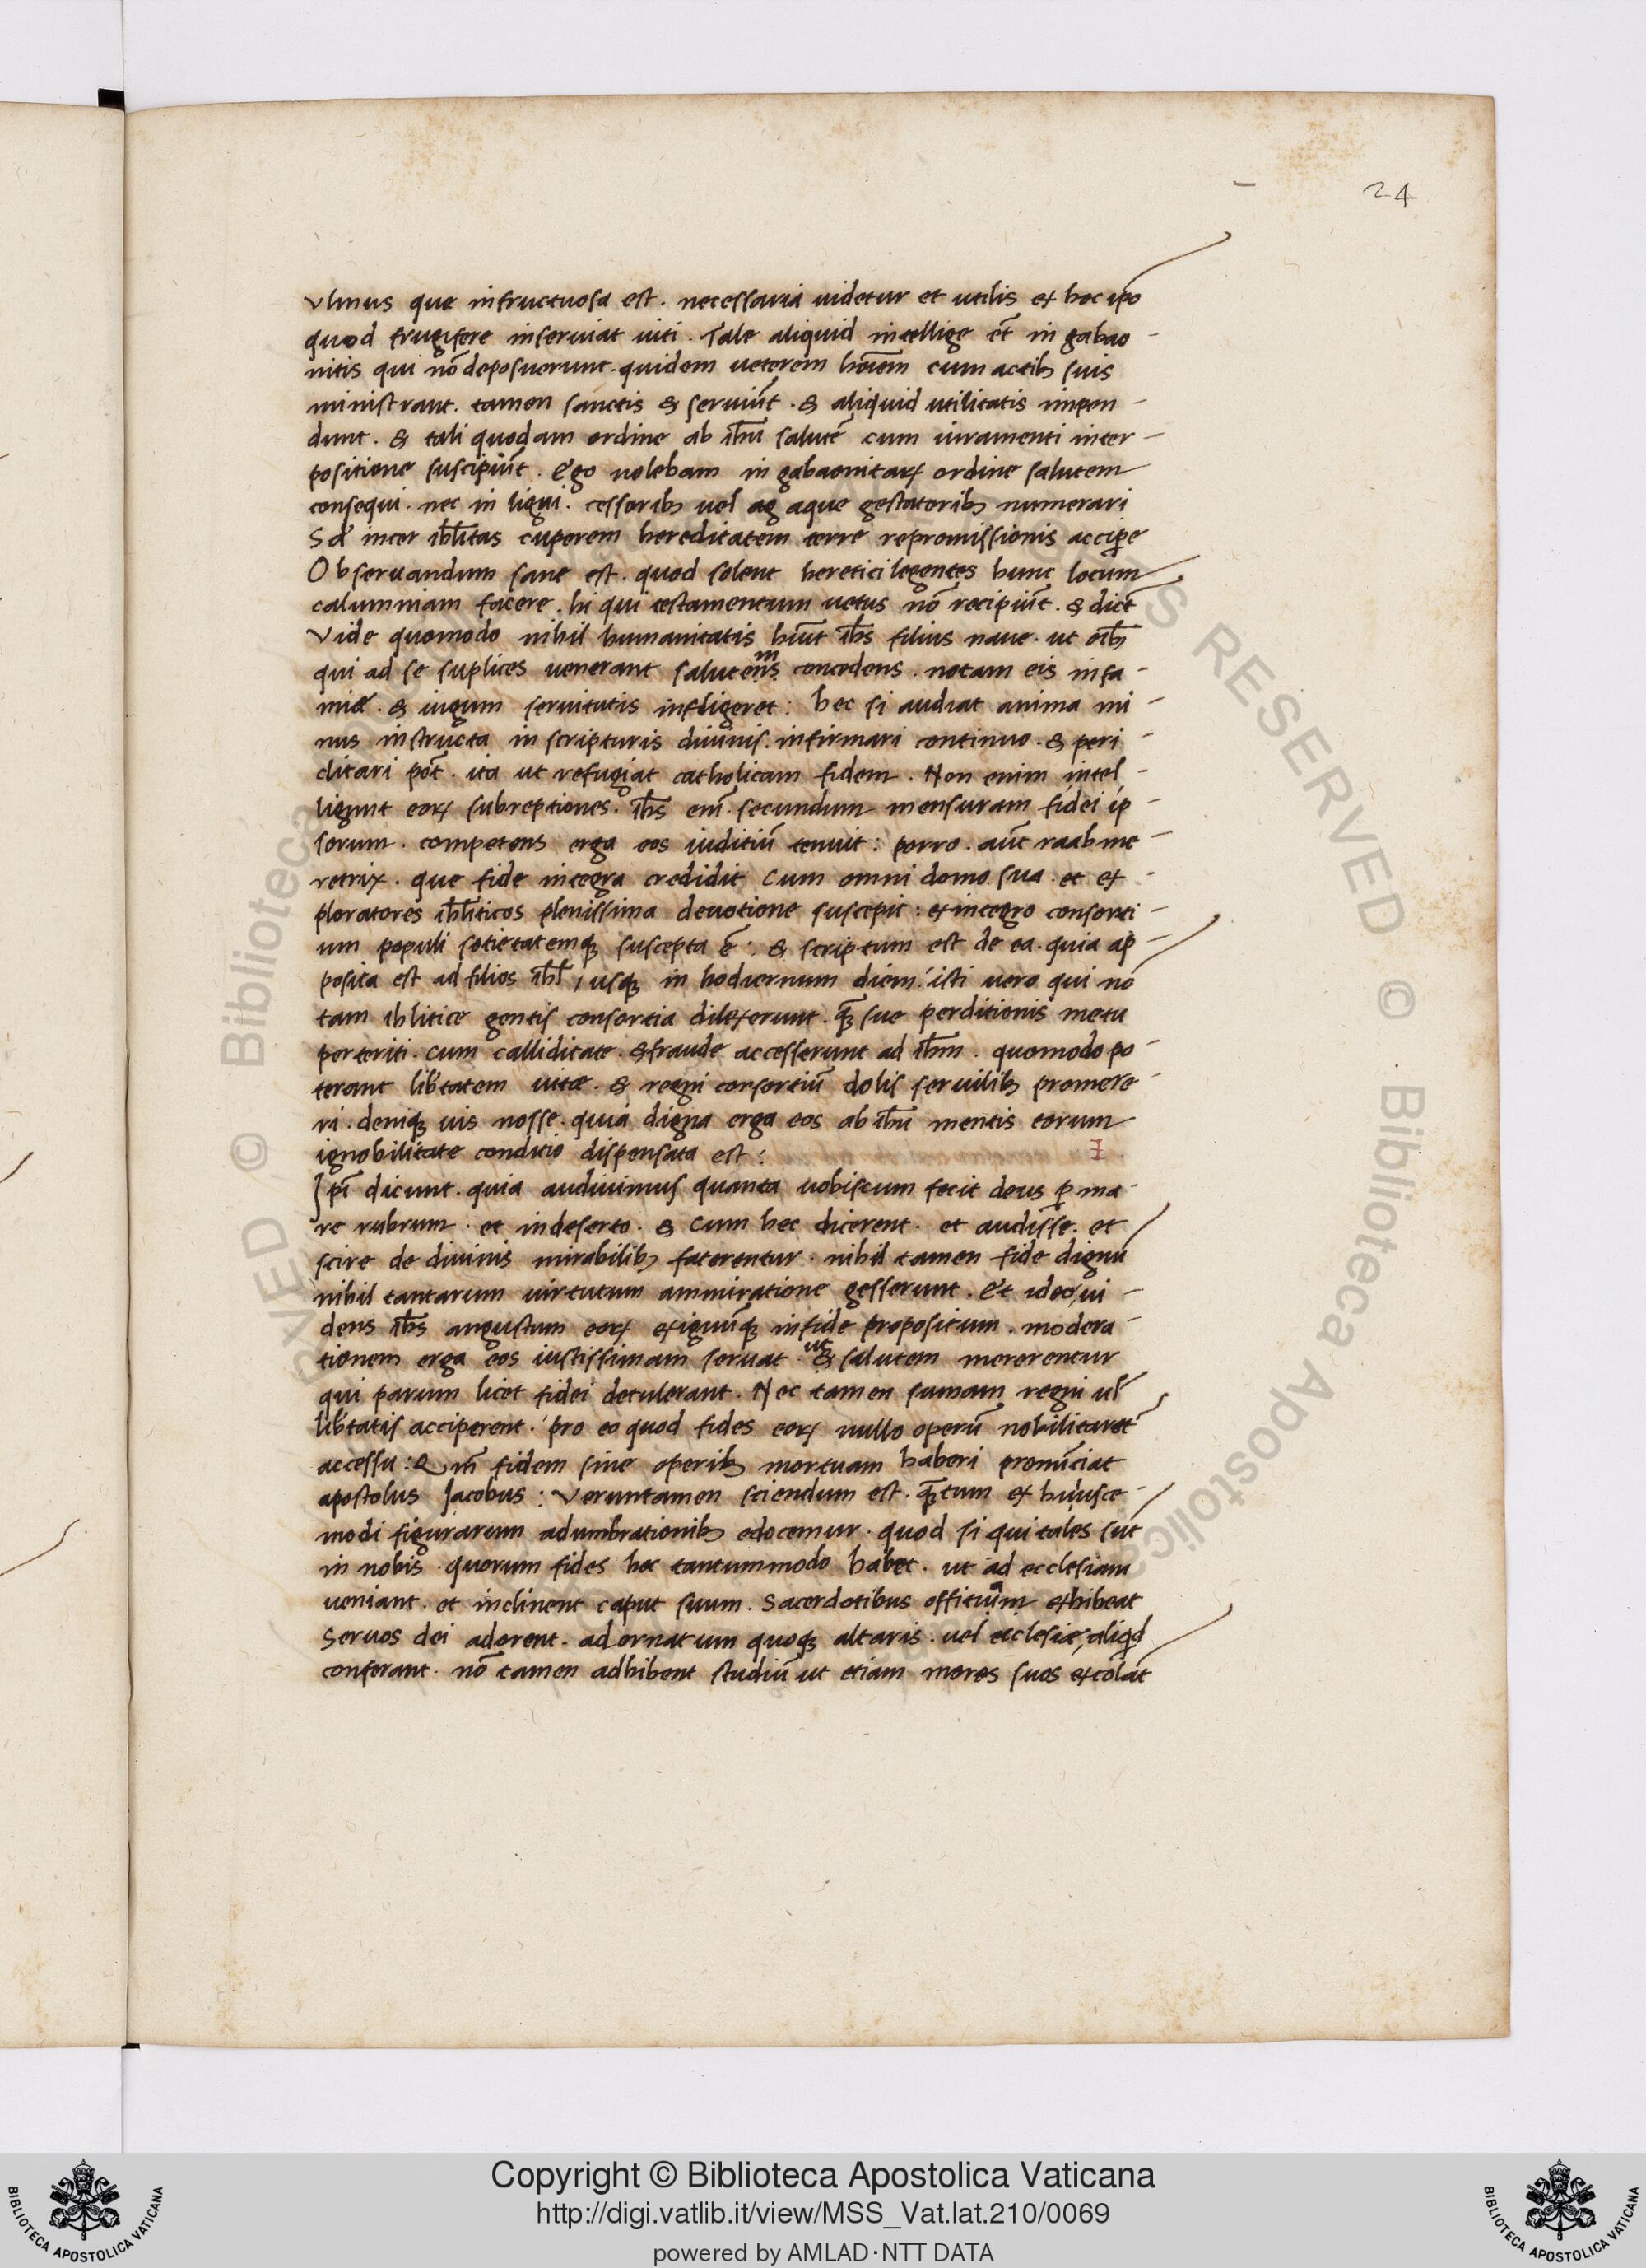 24
vlmus que infructuosa est. necessaria uidetur et utilis ex hoc ip̄o
quod frugifere inseruiat uiti. Tale aliquid intellige et̄ in gabao-
nitis qui nō deposuerunt. quidem ueterem hoīem cum actib; suis
ministrant. tamen sanctis & seruiūt. & aliquid utilitatis impen-
dunt. & tali quodam ordine ab ih̄u salutē cum iuramenti inter-
positione suscipiūt. Ego nolebam in gabaonitaꝝ ordine salutem
consequi. nec in ligni. cessorib; uel ag aque gestatorib; numerari
Sꝫ inter ih̄litas cuperem hereditatem terre repromissionis acciꝑe
Obseruandum sane est. quod solent heretici legentes hunc locum
calumniam facere. hi qui testamentum uetus nō recipiūt. & dicūt
Vide quomodo nihil humanitatis hūit ih̄s filius naue. ut oīb;
qui ad se suplices uenerant salutens m concedens. notam eis infa-
miæ. & iugum seruitutis infligeret: hec si audiat anima mi-
nus instructa in scripturis diuinis. infirmari continuo. & peri-
clitari pōt. ita ut refugiat catholicam fidem. Non enim intel-
ligunt eoꝝ subreptiones. ih̄s eni. secundum mensuram fidei ip-
sorum. competens erga eos iuditiū tenuit: porro. aūt raab me-
retrix. que fide integra credidit cum omni domo sua. et ex-
ploratores ih̄liticos plenissima deuotione suscepit: ex integro consorti-
um populi sotietatemqꝫ suscepta ē: & scriptum est de ea. quia ap-
posita est ad filios ih̄l, usqꝫ in hodiernum diem: isti uero qui nō
tam ihlitice gentis consortia dilexerunt. q̄ꝫ sue perditionis metu
perteriti. cum calliditate. & fraude accesserunt ad ih̄m. quomodo po-
terant lib̄tatem uitæ. & regni consortiū dolis seruilib; promere-
ri. deniqꝫ uis nosse. quia digna erga eos ab ih̄u mentis eorum
ignobilitate conditio dispensata est:
Ip̄i dicunt. quia audiuimus quanta uobiscum fecit deus ꝑ ma-
re rubrum. et in deserto. & cum hec dicerent. et audisse. et
scire de diuinis mirabilib; faterentur. nihil tamen fide dignū
nihil tantarum uirtutum ammiratione gesserunt. Et ideo, ui-
dens ih̄s angustum eoꝝ exiguūqꝫ in fide propositum. modera-
tionem erga eos iustissimam seruat. ut & salutem mererentur
qui parum licet fidei detulerant. Nec tamen sumam regni ul̄
lib̄tatis acciperent. pro eo quod fides eoꝝ nullo operū nobilitaret̄
accessu: Qm̄ fidem sine operib; mortuam haberi pronūciat
apostolus Jacobus: Veruntamen sciendum est. q̄ꝫtum ex huiusce-
modi figurarum adumbrationib; edocemur. quod si qui tales sūt
in nobis. quorum fides hoc tantummodo habet. ut ad ecclesiam
ueniant. et inclinent caput suum. Sacerdotibus offitium a exhibeat
Seruos dei adorent. ad ornatum quoqꝫ altaris. uel ecclesiæ, aliqd
conferant. nō tamen adhibent studiū ut etiam mores suos excolāt
Copyright © Biblioteca Apostolica Vaticana
http://digi.vatlib.it/view/MSS_Vat.lat.210/0069
powered by AMLAD·NTT DATA
BIBLIOTECA APOSTOLICA VATICANA
BIBLIOTECA APOSTOLICA VATICANA